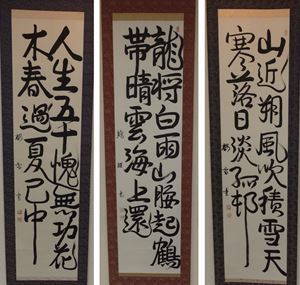 山近朔風吹積雪天
寒落日淡孤邨
龍将白雨山腰起鶴
帯晴雲海上還
人生五十愧無功花
木春過夏已中